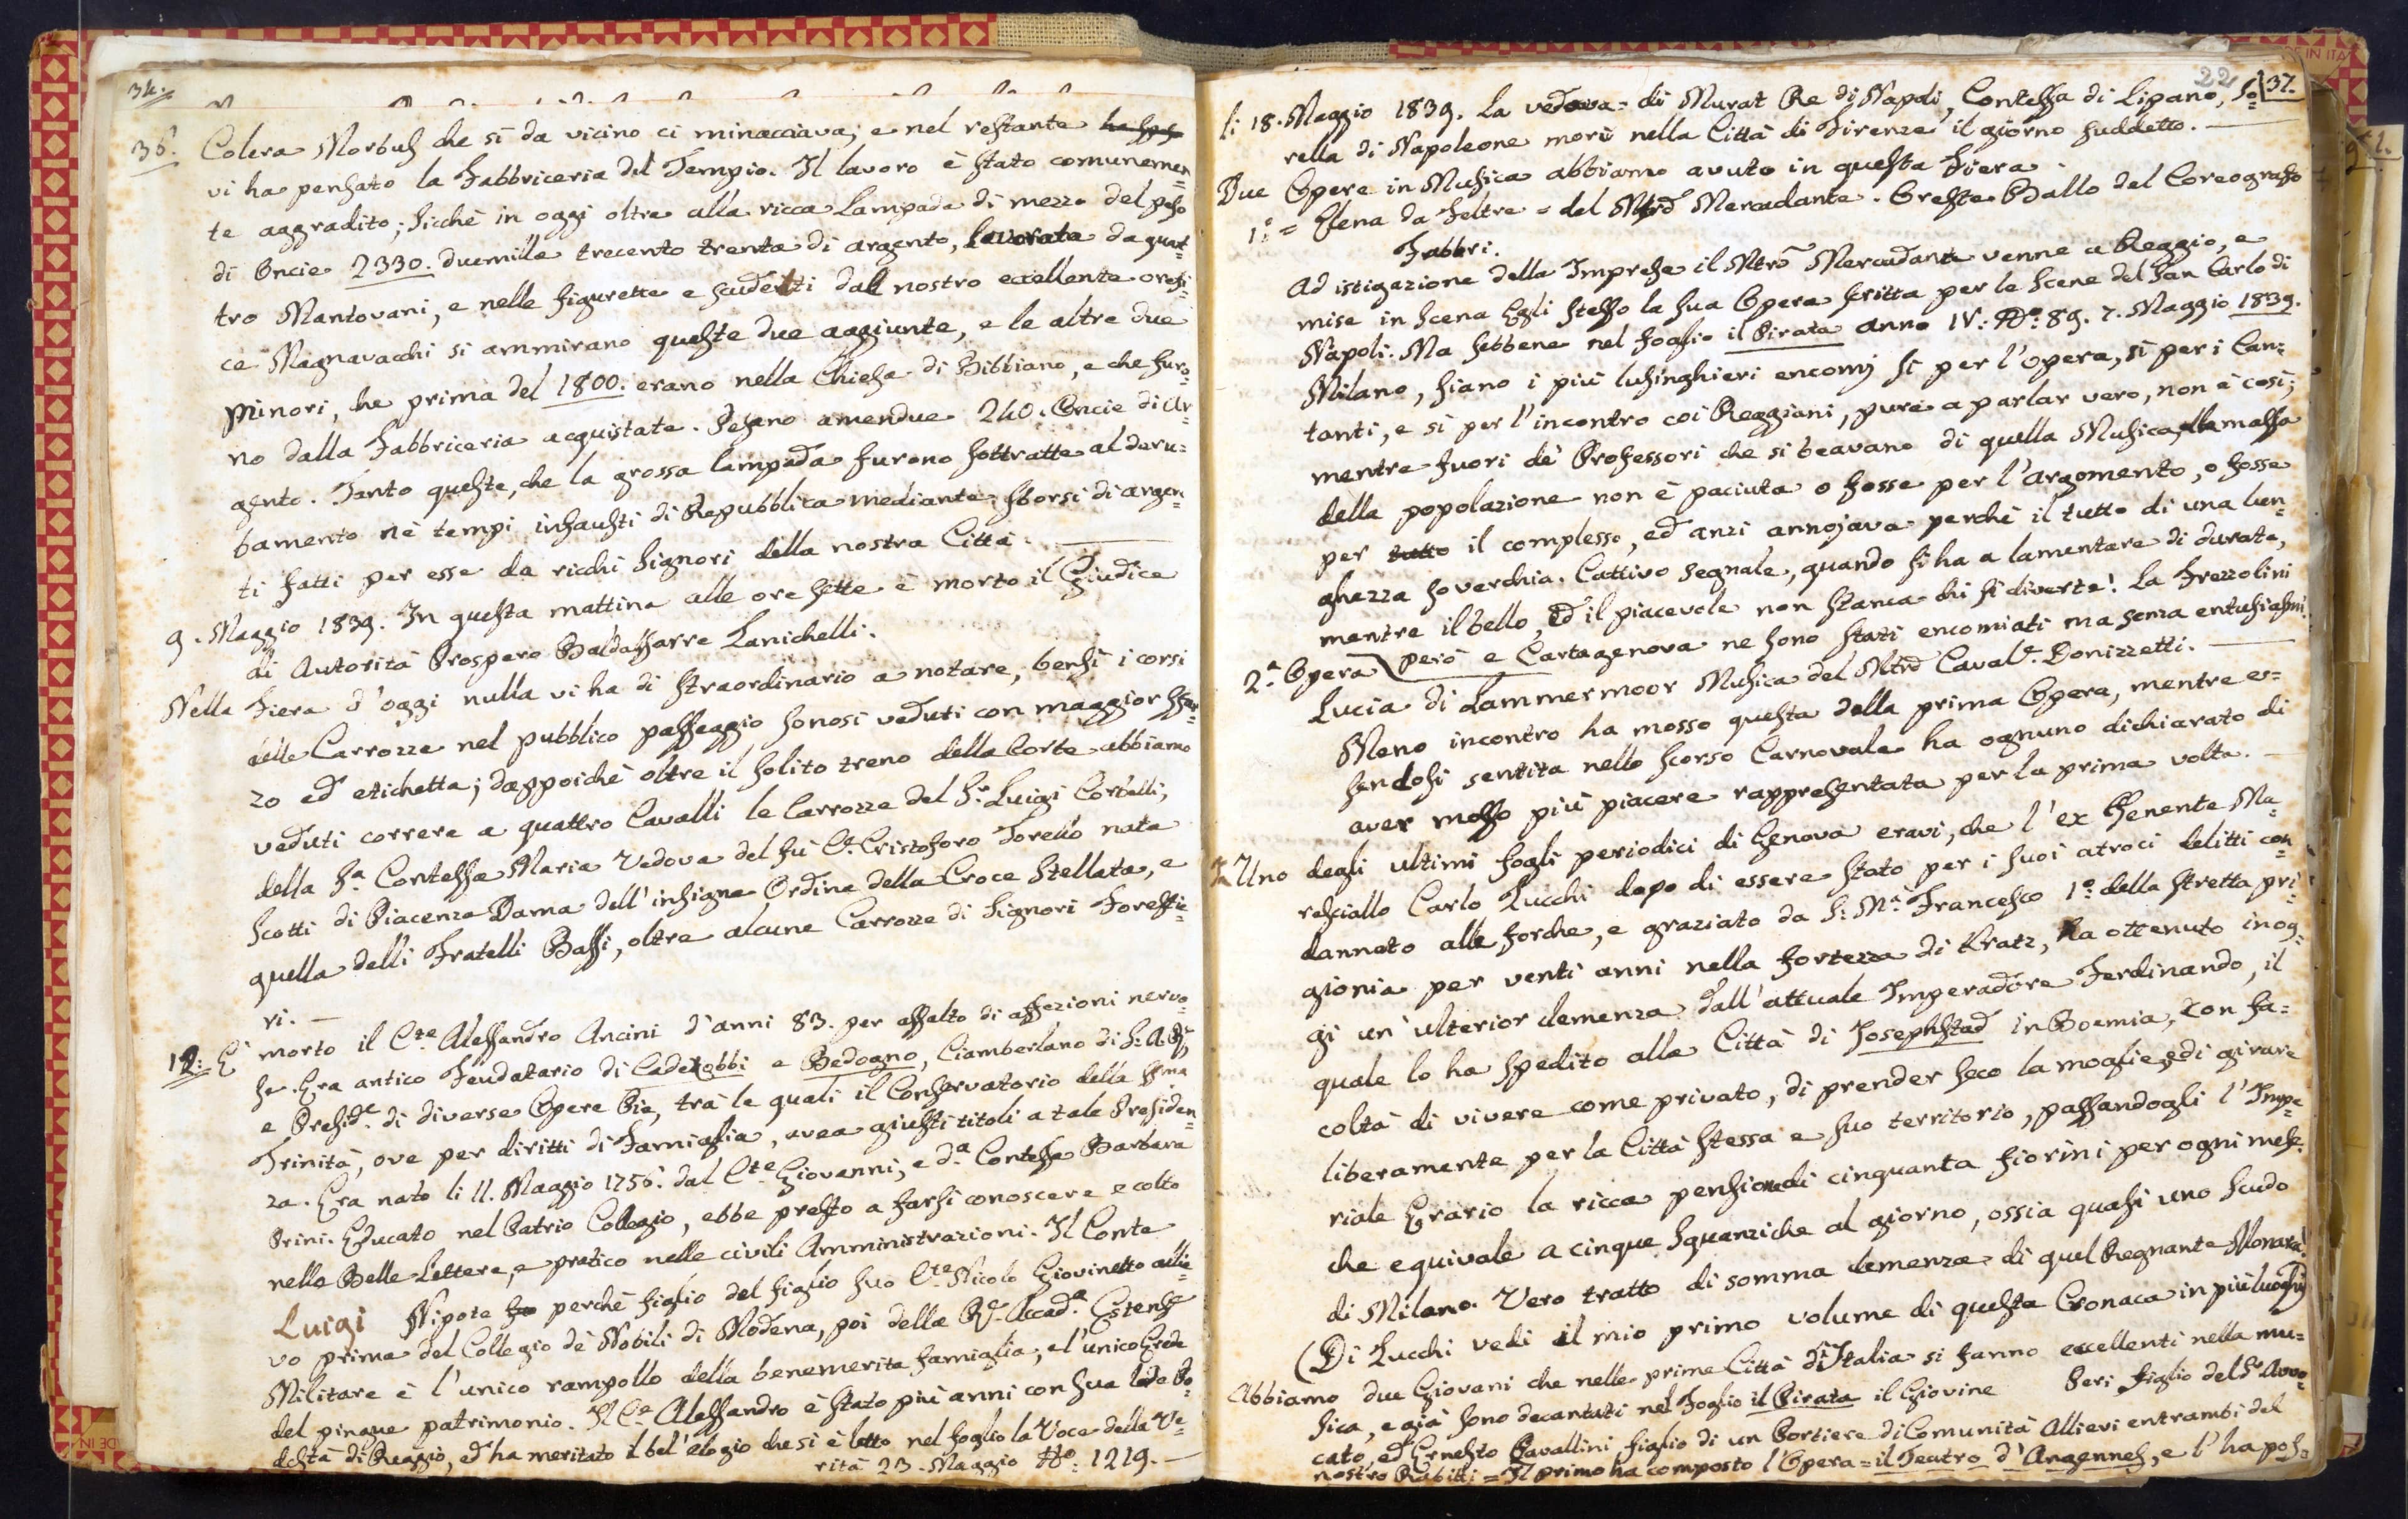 34.
36. Colera Morbus che sì da vicino ci minacciava; e nel restante
vi ha pensato la Fabbriceria del Tempio. Il lavoro è stato comunemen=
te aggradito; sicchè in oggi oltre alla ricca Lampada di mezzo del peso
di Oncie 2330. duemille trecento trenta di argento, lavorata da quat=
tro Mantovani, e nelle figurette e scudetti dal nostro eccellente orefi=
ce Magnavacchi si ammirano queste due aggiunte, e le altre due
minori, he prima del 1800. erano nella Chiesa di Bibbiano, e che furo=
no dalla Fabbriceria acquistate. Pesano amendue 240. Oncie di ar=
gento. Tanto queste, che la grossa lampada furono sottratte al deru=
bamento nè tempi infausti di Repubblica mediante sborsi di argen=
ti fatti per esse da ricchi Signori della nostra Città.
9. Maggio 1839. In questa mattina alle ore sette è morto il Giudice
di Autorità Prospero Baldassarre Lanichelli.
Nella Fiera d'oggi nulla vi ha di straordinario a notare, bensì i corsi
delle Carrozze nel pubblico passeggio sonosi veduti con maggior sfar=
zo ed etichetta; dappoichè oltre il solito treno della Corte abbiamo
veduti correre a quattro Cavalli le Carrozze del Sr. Luigi Corbelli,
della Sa. Contessa Maria Vedova del fù Ce. Cristoforo Torello nata
Scotti di Piacenza Dama dell'insigne Ordine della Croce Stellata, e
quella delli Fratelli Bassi, oltre alcune Carrozze di Signori Forestie=
ri. —
12. È morto il Cte. Alessandro Ancini d'anni 83. per assalto di affezioni nervo=
se. Era antico Feudatario di Cadetobbi e Bedogno, Ciamberlano di S. A. R.
e Preside. di diverse Opere Pie, trà le quali il Conservatorio della SSma
Trinità, ove per diritti di Famiglia, avea giusti titoli a tale Presiden=
za. Era nato li 11. Maggio 1756. dal Cte. Giovanni, e da. Contessa Barbara
Prini. Educato nel Patrio Collegio, ebbe presto a farsi conoscere e colto
nelle Belle Lettere, e pratico nelle civili Amministrazioni. Il Conte
Luigi Nipote perchè figlio del figlio suo Cte. Nicolò Giovinetto allie=
vo prima del Collegio dè Nobili di Modena, poi della Re. Accada. Estense
Militare è l'unico rampollo della benemerita famiglia; e l'unico Erede
del pingue patrimonio. Il Ce. Alessandro è stato più anni con sua lode Po=
destà di Reggio, ed ha meritato il bel'elogio che si è letto nel foglio la Voce della Ve=
rità 23. Maggio No. 1219. —
22
37.
li 18. Maggio 1839. La vedova di Murat Re di Napoli, Contessa di Lipano, So=
rella di Napoleone morì nella Città di Firenze il giorno suddetto.
Due Opere in Musica abbiamo avuto in questa Fiera.
1ª. = Elena da Feltre = del Mtrō Mercadante. Oreste Ballo del Coreografo
Fabbri.
Ad istigazione della Impresa il Mtrō Mercadante venne a Reggio, e
mise in scena Egli stesso la sua Opera scritta per le Scene del San Carlo di
Napoli. Ma sebbene nel foglio il Pirata anno IV. No. 89. 7. Maggio 1839.
Milano, siano i più lusinghieri encomj sì per l'Opera, sì per i Can=
tanti, e sì per l'incontro coi Reggiani, pure a parlar vero, non è così;
mentre fuori dè Professori che si beavano di quella Musica, alla massa
della popolazione non è paciuta o fosse per l'argomento, o fosse
per tutto il complesso, ed anzi annojava perchè il tutto di una lun=
ghezza soverchia. Cattivo segnale, quando si ha a lamentare di durata,
mentre il bello, ed il piacevole non stanca chi si diverte! La Frezzolini
però e Cartagenova ne sono stati encomiati ma senza entusiasmi.
2ª. Opera Lucia di Lammermoor Musica del Mtrō Cavale. Donizzetti. —
Meno incontro ha mosso questa della prima Opera, mentre es=
sendosi sentita nello scorso Carnovale ha ognuno dichiarato di
aver mosso più piacere rappresentata per la prima volta. —
In Uno degli ultimi fogli periodici di Genova eravi, che l'ex Tenente Ma=
resciallo Carlo Zucchi dopo di essere stato per i suoi atroci delitti con=
dannato alle forche, e graziato da S. Ma. Francesco 1o. della stretta pri=
gionia per venti anni nella fortezza di Kratz, ha ottenuto in og=
gi un'ulterior clemenza dall'attuale Imperadore Ferdinando, il
quale lo ha spedito alla Città di Josephstad in Boemia, con fa=
coltà di vivere come privato, di prender seco la moglie, e di girare
liberamente per la Città stessa e suo territorio, passandogli l'Impe=
riale Erario la ricca pensione di cinquanta fiorini per ogni mese,
che equivale a cinque Sguanziche al giorno, ossia quasi uno scudo
di Milano. Vero tratto di somma clemenza di quel Regnante Monarca!
(Di Zucchi vedi il mio primo volume di questa Cronaca in più luoghi)
Abbiamo due Giovani che nelle prime Città d'Italia si fanno eccellenti nella mu=
sica, e già sono decantati nel Foglio il Pirata il Giovine Peri figlio del Sr. Avvo=
cato, ed Ernesto Cavallini figlio di un Portiere di Comunità Allievi entrambi del
nostro Rabitti = Il primo ha composto l'Opera = il Teutro d'Angennes, e l'ha pos=